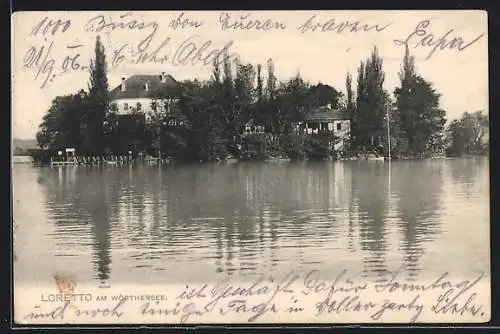 1000 Bussy von Eueren braven Papa,
21/9. 06.
LORETTO AM WÖRTHERSEE.
ist Geschäft Dafür Sonntag
und noch einige Tage in voller Liebe.